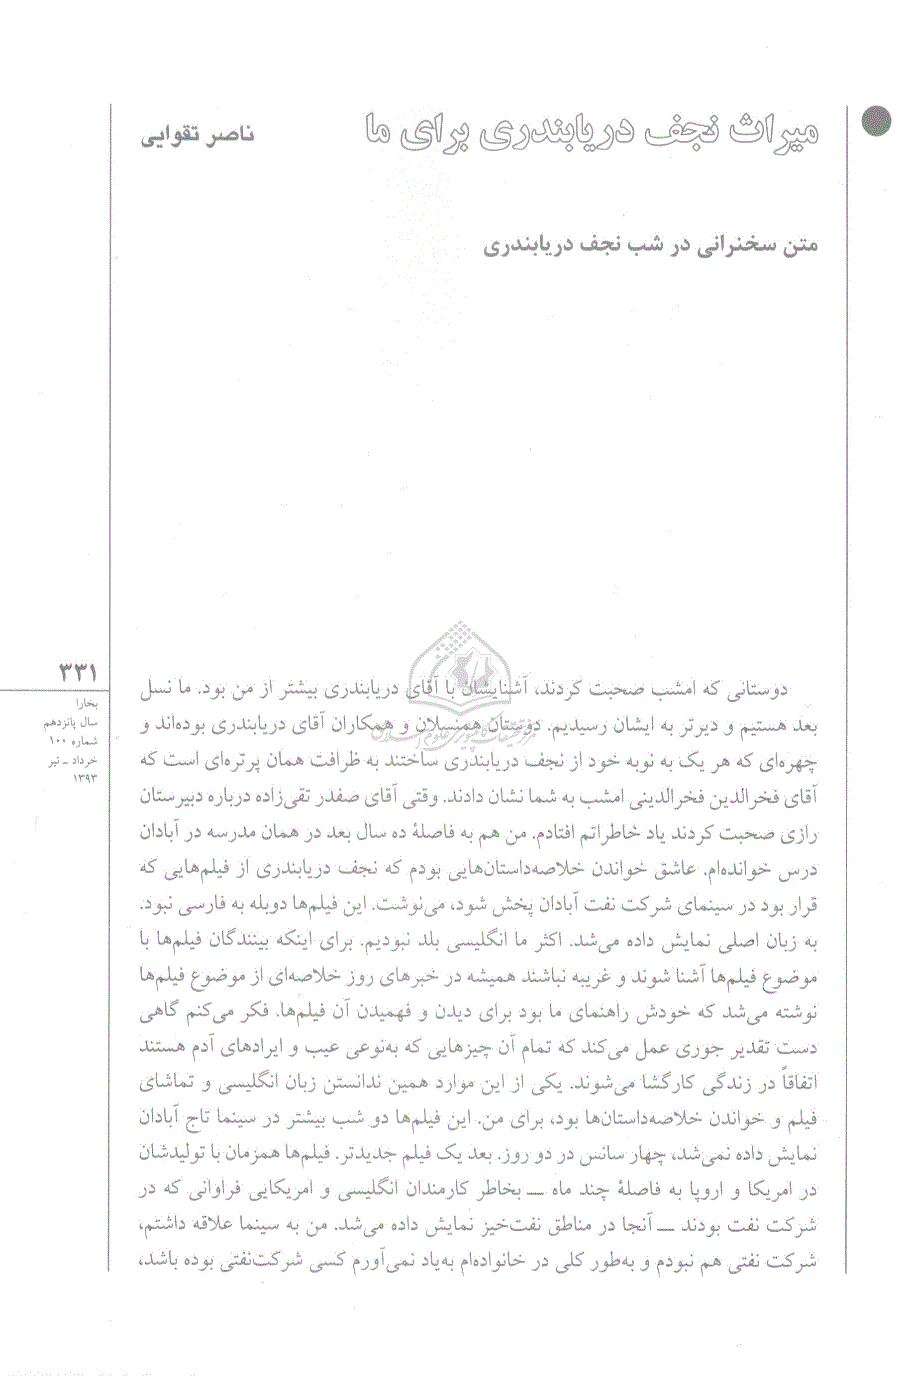 میراث نجف دریابندری برای ما
ناصر تقوایی
متن سخنرانی در شب نجف دریابندری
۳۳۱
بخارا
سال پانزدهم
شماره ۱۰۰
خرداد ـ تیر
۱۳۹۳
دوستانی که امشب صحبت کردند، آشنایشان با آقای دریابندری بیشتر از من بود. ما نسل
بعد هستیم و دیرتر به ایشان رسیدیم. دوستان همنسلان و همکاران آقای دریابندری بوده‌اند و
چهره‌ای که هر یک به نوبه خود از نجف دریابندری ساختند به ظرافت همان پرتره‌ای است که
آقای فخرالدین فخرالدینی امشب به شما نشان دادند. وقتی آقای صفدر تقی‌زاده درباره دبیرستان
رازی صحبت کردند یاد خاطراتم افتادم. من هم به فاصلهٔ ده سال بعد در همان مدرسه در آبادان
درس خوانده‌ام. عاشق خواندن خلاصه‌داستان‌هایی بودم که نجف دریابندری از فیلم‌هایی که
قرار بود در سینمای شرکت نفت آبادان پخش شود، می‌نوشت. این فیلم‌ها دوبله به فارسی نبود.
به زبان اصلی نمایش داده می‌شد. اکثر ما انگلیسی بلد نبودیم. برای اینکه بینندگان فیلم‌ها با
موضوع فیلم‌ها آشنا شوند و غریبه نباشند همیشه در خبرهای روز خلاصه‌ای از موضوع فیلم‌ها
نوشته می‌شد که خودش راهنمای ما بود برای دیدن و فهمیدن آن فیلم‌ها. فکر می‌کنم گاهی
دست تقدیر جوری عمل می‌کند که تمام آن چیزهایی که به‌نوعی عیب و ایرادهای آدم هستند
اتفاقاً در زندگی کارگشا می‌شوند. یکی از این موارد همین ندانستن زبان انگلیسی و تماشای
فیلم و خواندن خلاصه‌داستان‌ها بود، برای من. این فیلم‌ها دو شب بیشتر در سینما تاج آبادان
نمایش داده نمی‌شد، چهار سانس در دو روز. بعد یک فیلم جدیدتر. فیلم‌ها همزمان با تولیدشان
در امریکا و اروپا به فاصلهٔ چند ماه ــ بخاطر کارمندان انگلیسی و امریکایی فراوانی که در
شرکت نفت بودند ــ آنجا در مناطق نفت‌خیز نمایش داده می‌شد. من به سینما علاقه داشتم،
شرکت نفتی هم نبودم و به‌طور کلی در خانواده‌ام به‌یاد نمی‌آورم کسی شرکت‌نفتی بوده باشد،